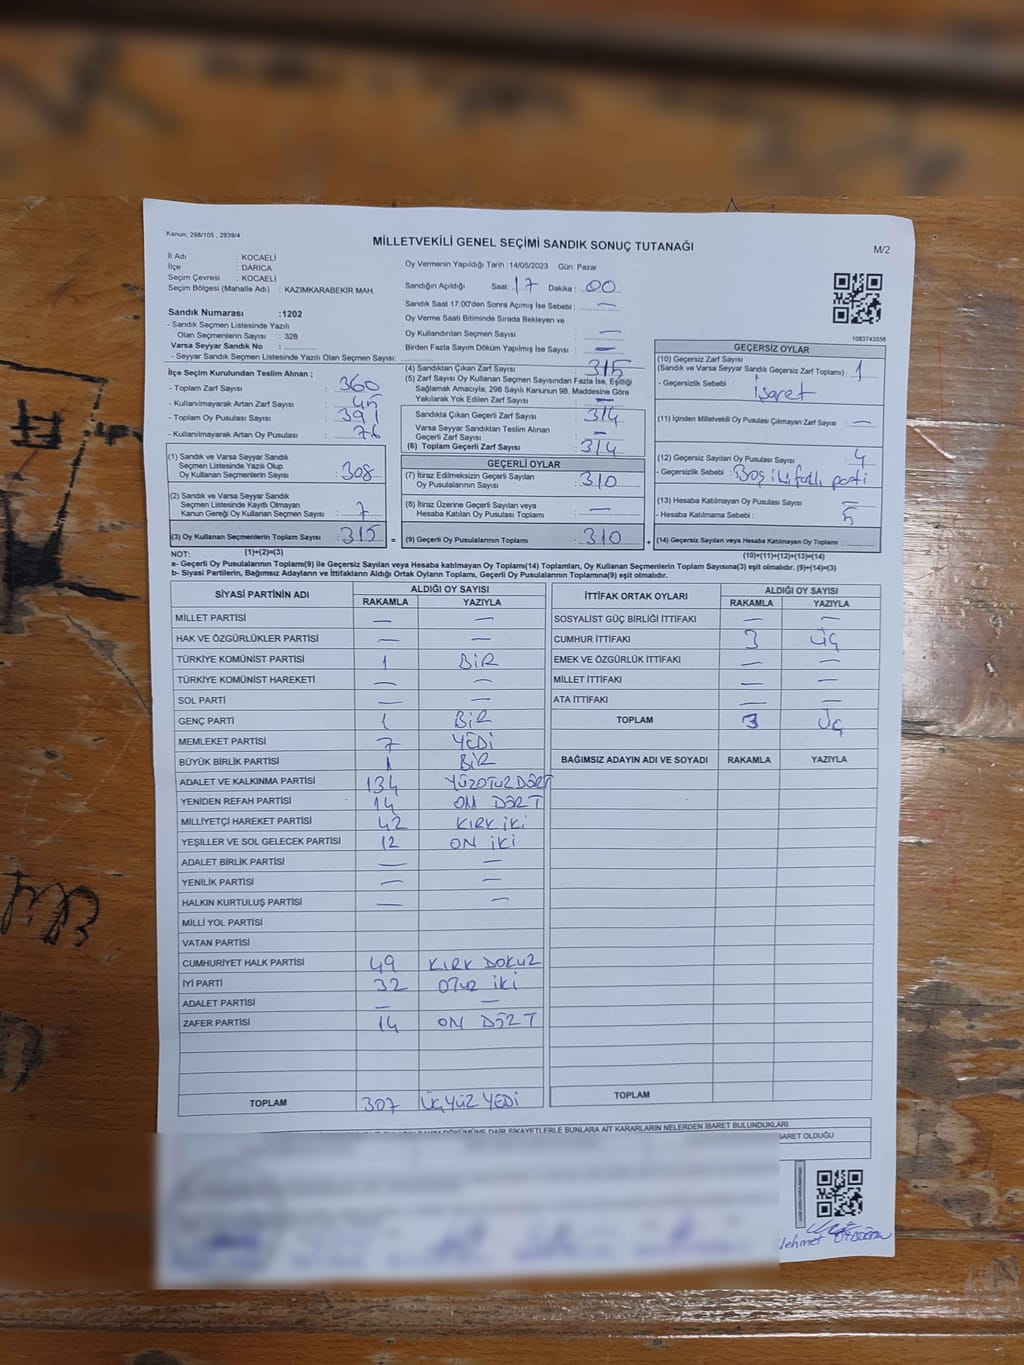 Kanun; 298/105 , 2839/4
MİLLETVEKİLİ GENEL SEÇİMİ SANDIK SONUÇ TUTANAĞI
M/2
İl Adı : KOCAELİ
İlçe : DARICA
Seçim Çevresi : KOCAELİ
Seçim Bölgesi (Mahalle Adı) : KAZIMKARABEKİR MAH.
Sandık Numarası :1202
- Sandık Seçmen Listesinde Yazılı
Olan Seçmenlerin Sayısı : 328
Varsa Seyyar Sandık No :
- Seyyar Sandık Seçmen Listesinde Yazılı Olan Seçmen Sayısı:
Oy Vermenin Yapıldığı Tarih :14/05/2023 Gün: Pazar
Sandığın Açıldığı Saat: 17 Dakika : 00
Sandık Saat 17:00'den Sonra Açımış İse Sebebi : —
Oy Verme Saati Bitiminde Sırada Bekleyen ve
Oy Kullandırılan Seçmen Sayısı : —
Birden Fazla Sayım Döküm Yapılmış İse Sayısı : —
1083743556
İlçe Seçim Kurulundan Teslim Alınan ;
- Toplam Zarf Sayısı : 360
- Kullanılmayarak Artan Zarf Sayısı : 45
- Toplam Oy Pusulası Sayısı : 391
- Kullanılmayarak Artan Oy Pusulası : 76
(1) Sandık ve Varsa Seyyar Sandık
Seçmen Listesinde Yazılı Olup
Oy Kullanan Seçmenlerin Sayısı : 308
(2) Sandık ve Varsa Seyyar Sandık
Seçmen Listesinde Kayıtlı Olmayan
Kanun Gereği Oy Kullanan Seçmen Sayısı : 7
(3) Oy Kullanan Seçmenlerin Toplam Sayısı : 315
(1)+(2)=(3)
(4) Sandıktan Çıkan Zarf Sayısı : 315
(5) Zarf Sayısı Oy Kullanan Seçmen Sayısından Fazla İse, Eşitliği
Sağlamak Amacıyla; 298 Sayılı Kanunun 98. Maddesine Göre
Yakılarak Yok Edilen Zarf Sayısı : —
Sandıkta Çıkan Geçerli Zarf Sayısı : 314
Varsa Seyyar Sandıktan Teslim Alınan
Geçerli Zarf Sayısı : —
(6) Toplam Geçerli Zarf Sayısı : 314
GEÇERLİ OYLAR
(7) İtiraz Edilmeksizin Geçerli Sayılan
Oy Pusulalarının Sayısı : 310
(8) İtiraz Üzerine Geçerli Sayılan veya
Hesaba Katılan Oy Pusulası Toplamı : —
= (9) Geçerli Oy Pusulalarının Toplamı : 310 +
GEÇERSİZ OYLAR
(10) Geçersiz Zarf Sayısı
(Sandık ve Varsa Seyyar Sandık Geçersiz Zarf Toplamı) : 1
- Geçersizlik Sebebi : İşaret
(11) İçinden Milletvekili Oy Pusulası Çıkmayan Zarf Sayısı : —
(12) Geçersiz Sayılan Oy Pusulası Sayısı : 4
- Geçersizlik Sebebi : Boş iki farklı parti
(13) Hesaba Katılmayan Oy Pusulası Sayısı : —
- Hesaba Katılmama Sebebi : 5
(14) Geçersiz Sayılan veya Hesaba Katılmayan Oy Toplamı :
(10)+(11)+(12)+(13)=(14)
NOT:
a- Geçerli Oy Pusulalarının Toplamı(9) ile Geçersiz Sayılan veya Hesaba katılmayan Oy Toplamı(14) Toplamları, Oy Kullanan Seçmenlerin Toplam Sayısına(3) eşit olmalıdır. (9)+(14)=(3)
b- Siyasi Partilerin, Bağımsız Adayların ve İttifakların Aldığı Ortak Oyların Toplamı, Geçerli Oy Pusulalarının Toplamına(9) eşit olmalıdır.
SİYASİ PARTİNİN ADI ALDIĞI OY SAYISI
RAKAMLA YAZIYLA
MİLLET PARTİSİ — —
HAK VE ÖZGÜRLÜKLER PARTİSİ — —
TÜRKİYE KOMÜNİST PARTİSİ 1 BİR
TÜRKİYE KOMÜNİST HAREKETİ — —
SOL PARTİ — —
GENÇ PARTİ 1 BİR
MEMLEKET PARTİSİ 7 YEDİ
BÜYÜK BİRLİK PARTİSİ 1 BİR
ADALET VE KALKINMA PARTİSİ 134 YÜZOTUZDÖRT
YENİDEN REFAH PARTİSİ 14 ON DÖRT
MİLLİYETÇİ HAREKET PARTİSİ 42 KIRK İKİ
YEŞİLLER VE SOL GELECEK PARTİSİ 12 ON İKİ
ADALET BİRLİK PARTİSİ — —
YENİLİK PARTİSİ — —
HALKIN KURTULUŞ PARTİSİ — —
MİLLİ YOL PARTİSİ
VATAN PARTİSİ
CUMHURİYET HALK PARTİSİ 49 KIRK DOKUZ
İYİ PARTİ 32 OTUZ İKİ
ADALET PARTİSİ — —
ZAFER PARTİSİ 14 ON DÖRT
TOPLAM 307 ÜÇYÜZ YEDİ
İTTİFAK ORTAK OYLARI ALDIĞI OY SAYISI
RAKAMLA YAZIYLA
SOSYALİST GÜÇ BİRLİĞİ İTTİFAKI — —
CUMHUR İTTİFAKI 3 ÜÇ
EMEK VE ÖZGÜRLÜK İTTİFAKI — —
MİLLET İTTİFAKI — —
ATA İTTİFAKI — —
TOPLAM 3 ÜÇ
BAĞIMSIZ ADAYIN ADI VE SOYADI RAKAMLA YAZIYLA
TOPLAM
SAYIM DÖKÜMÜNE DAİR ŞİKAYETLERLE BUNLARA AİT KARARLARIN NELERDEN İBARET BULUNDUKLARI
İBARET OLDUĞU